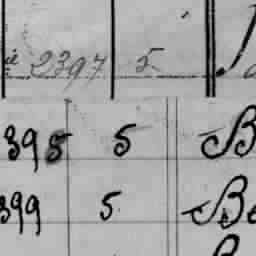 2397 5
395 5 B
399 5 Be